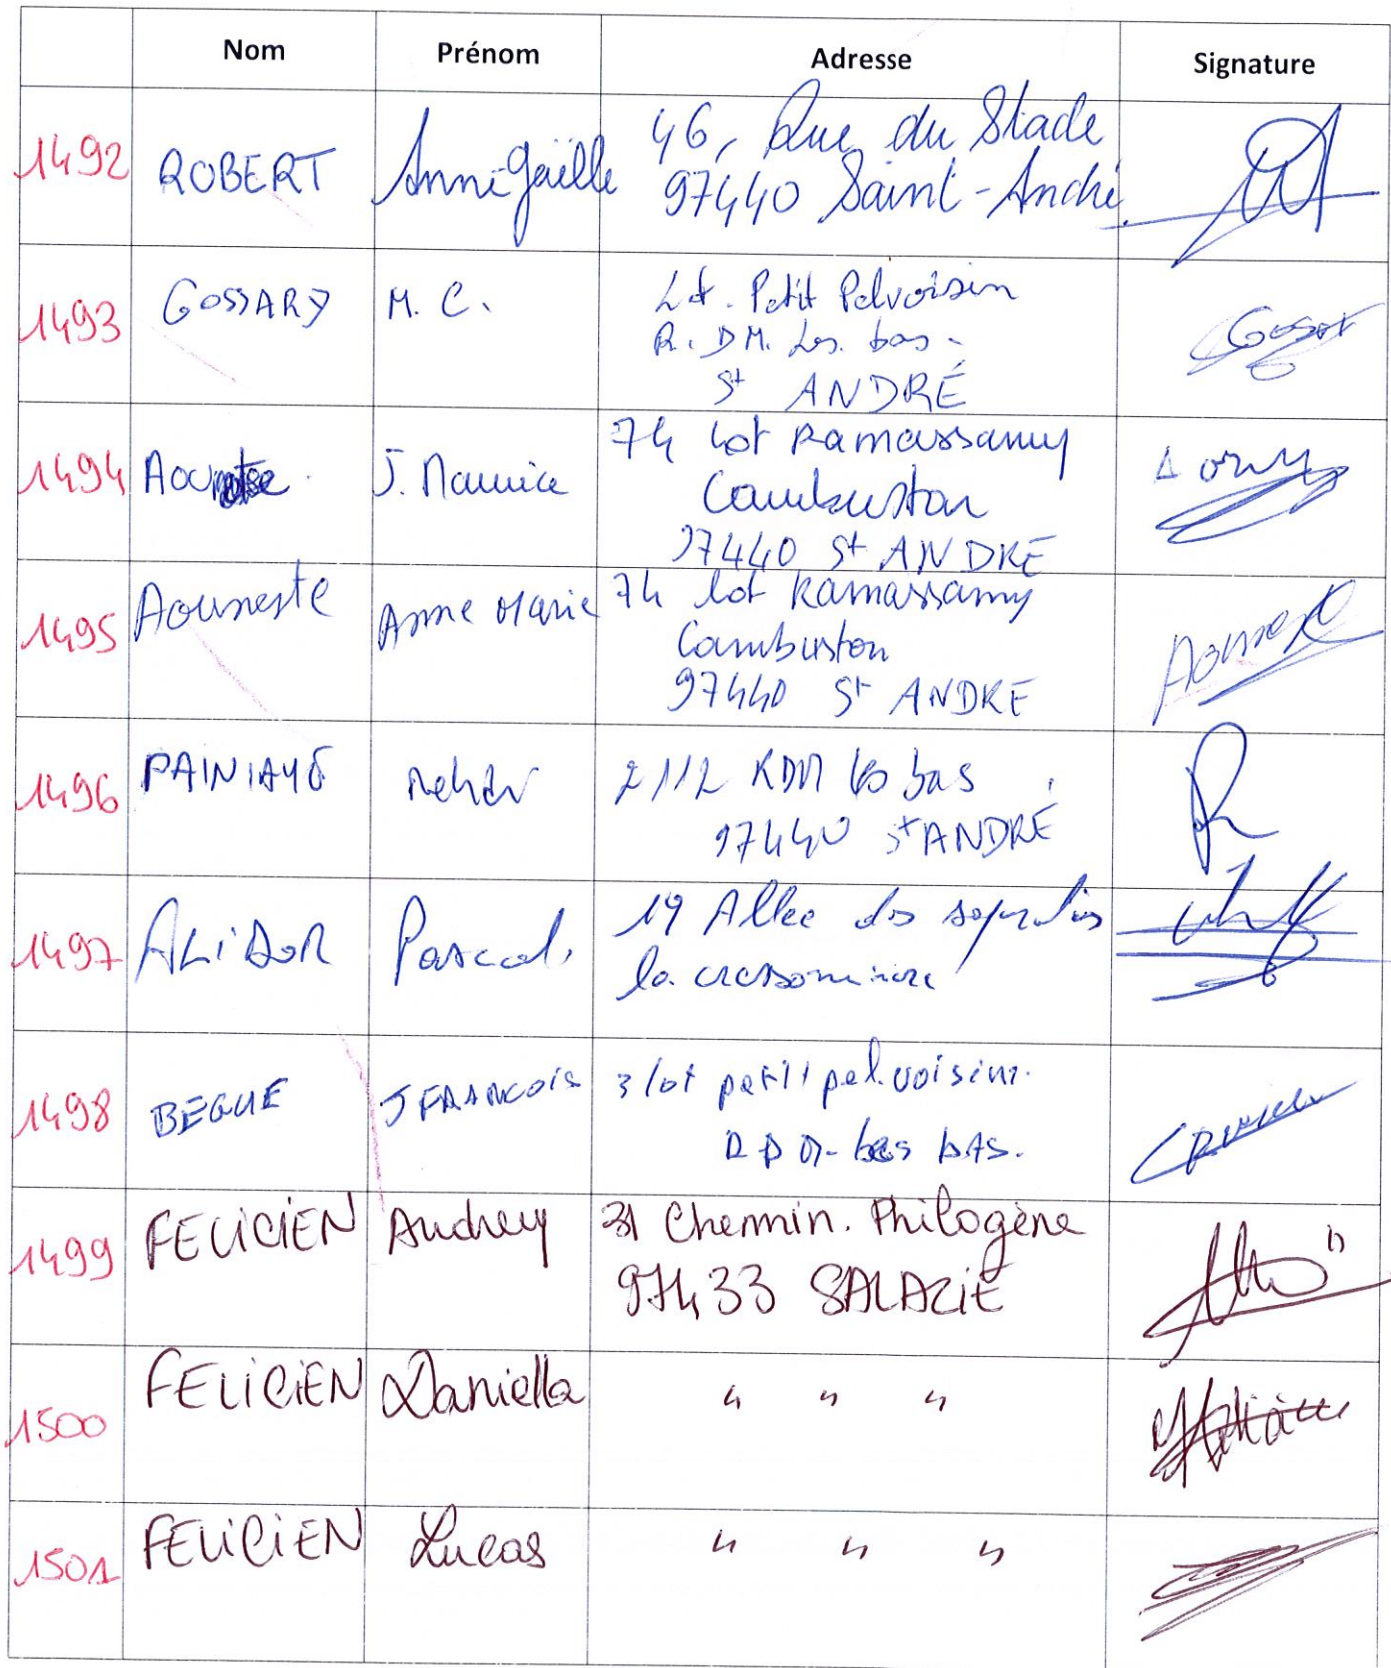 Nom Prénom Adresse Signature
1492 ROBERT Anne gaëlle 46, Rue du Stade
97440 Saint-André
1493 GOSSARD M. C. Lot. Petit Pelvoisin
R. DM. Les. bas -
St ANDRÉ
1494 J. Maurice 74 lot Ramassamy
Cambuston
97440 St ANDRE
1495 Aouneste Anne Marie 74 lot Ramassamy
Cambuston
97440 St ANDRE
1496 2112 RDM les bas
97440 St ANDRÉ
1497 ALIDOR Pascal 19 Allee des
la
1498 BEGUE J FRANCOIS 3 lot petit pel.voisin.
R D M - les bAS.
1499 FELICIEN Audrey 31 Chemin. Philogène
97433 SALAZIE
1500 FELICIEN Daniella " " "
1501 FELICIEN Lucas " " "